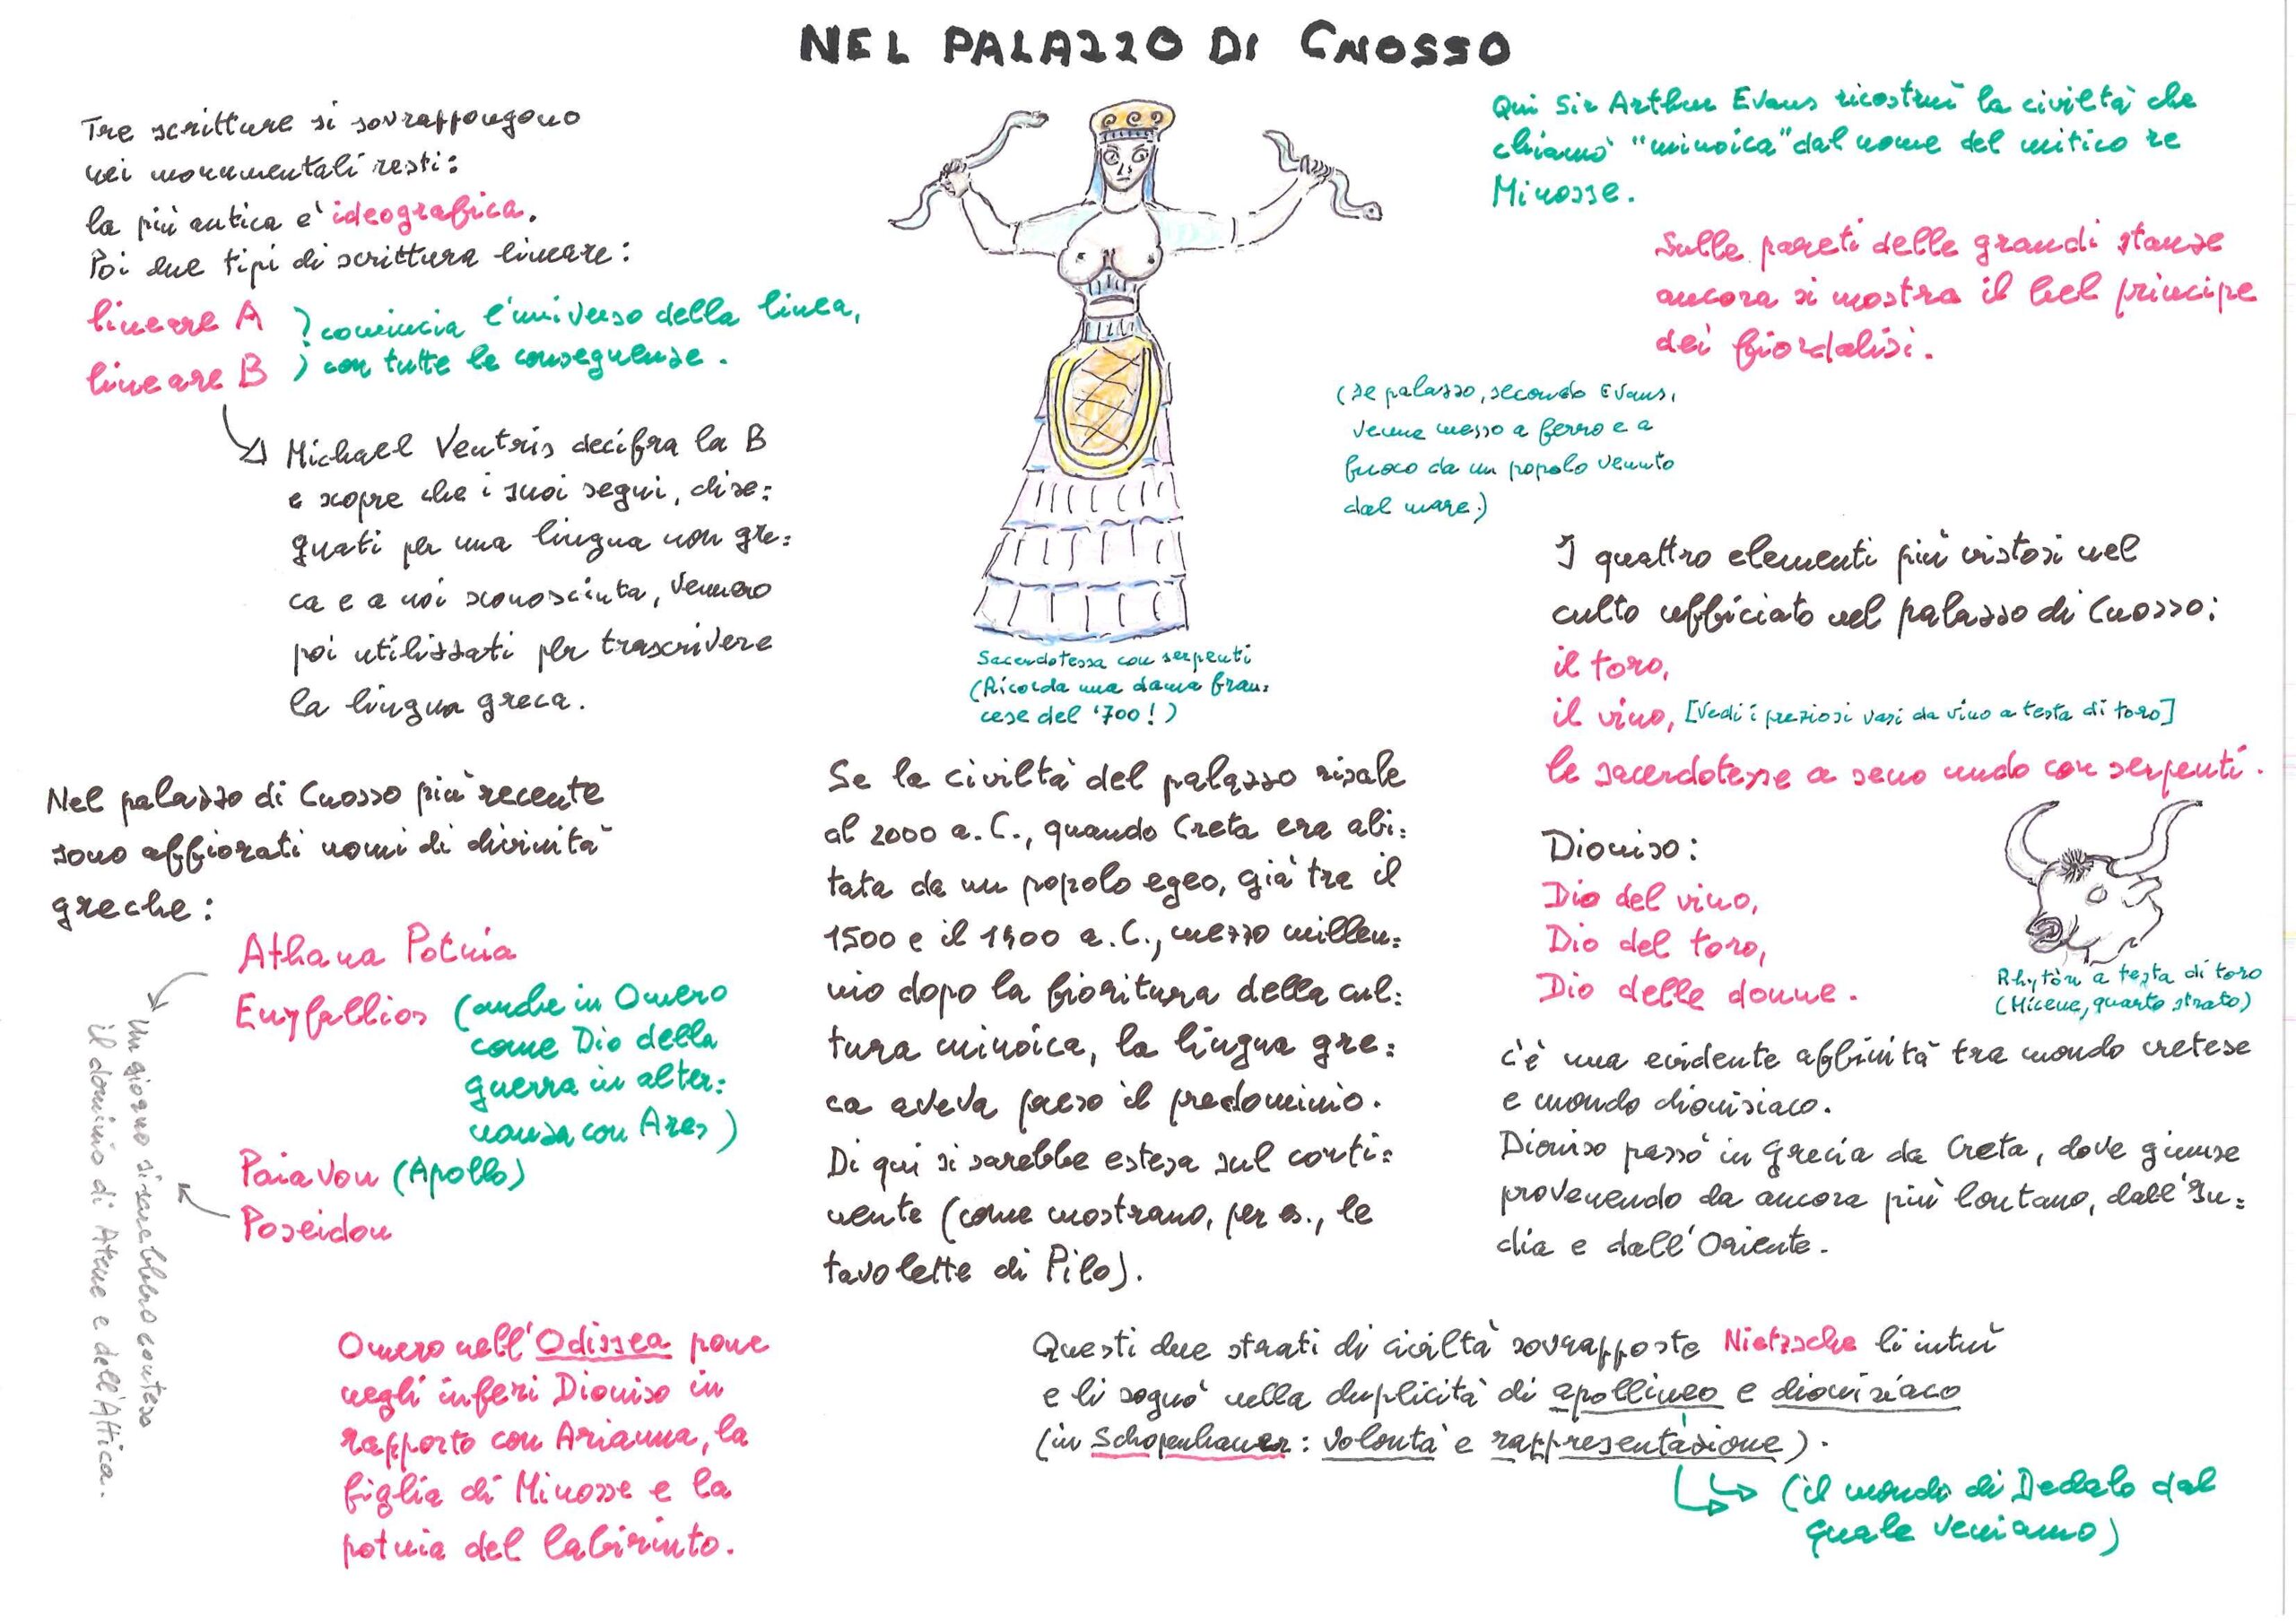 NEL PALAZZO DI CNOSSO
Tre scritture si sovrappongono
nei monumentali resti:
la più antica è ideografica.
Poi due tipi di scrittura lineare:
lineare A
lineare B
) comincia l'universo della linea,
) con tutte le conseguenze.
Michael Ventris decifra la B
e scopre che i suoi segni, dise=
gnati per una lingua non gre=
ca e a noi sconosciuta, vennero
poi utilizzati per trascrivere
la lingua greca.
Nel palazzo di Cnosso più recente
sono affiorati nomi di divinità
greche:
Athana Potnia
Enyfallios (anche in Omero
come Dio della
guerra in alter=
nanza con Ares)
Paiavon (Apollo)
Poseidon
Un giorno si sarebbero conteso
il dominio di Atene e dell'Attica.
Omero nell'Odissea pone
negli inferi Dioniso in
rapporto con Arianna, la
figlia di Minosse e la
potnia del labirinto.
Sacerdotessa con serpenti
(Ricorda una dama fran=
cese del '700!)
Se la civiltà del palazzo risale
al 2000 a.C., quando Creta era abi=
tata da un popolo egeo, già tra il
1500 e il 1400 a.C., mezzo millen=
nio dopo la fioritura della cul=
tura minoica, la lingua gre=
ca aveva preso il predominio.
Di qui si sarebbe estesa sul conti=
nente (come mostrano, per es., le
tavolette di Pilo).
Qui Sir Arthur Evans ricostruì la civiltà che
chiamò "minoica" dal nome del mitico re
Minosse.
Sulle pareti delle grandi stanze
ancora si mostra il bel principe
dei fiordalisi.
(Il palazzo, secondo Evans,
venne messo a ferro e a
fuoco da un popolo venuto
dal mare.)
I quattro elementi più vistosi nel
culto officiato nel palazzo di Cnosso:
il toro,
il vino, [Vedi i preziosi vasi da vino a testa di toro]
le sacerdotesse a seno nudo con serpenti.
Dioniso:
Dio del vino,
Dio del toro,
Dio delle donne.
Rhytòn a testa di toro
(Micene, quarto strato)
C'è una evidente affinità tra mondo cretese
e mondo dionisiaco.
Dioniso passò in Grecia da Creta, dove giunse
provenendo da ancora più lontano, dall'In=
dia e dall'Oriente.
Questi due strati di civiltà sovrapposte Nietzsche li intuì
e li sognò nella duplicità di apollineo e dionisiaco
(in Schopenhauer: Volontà e rappresentazione).
(il mondo di Dedalo dal
quale veniamo)